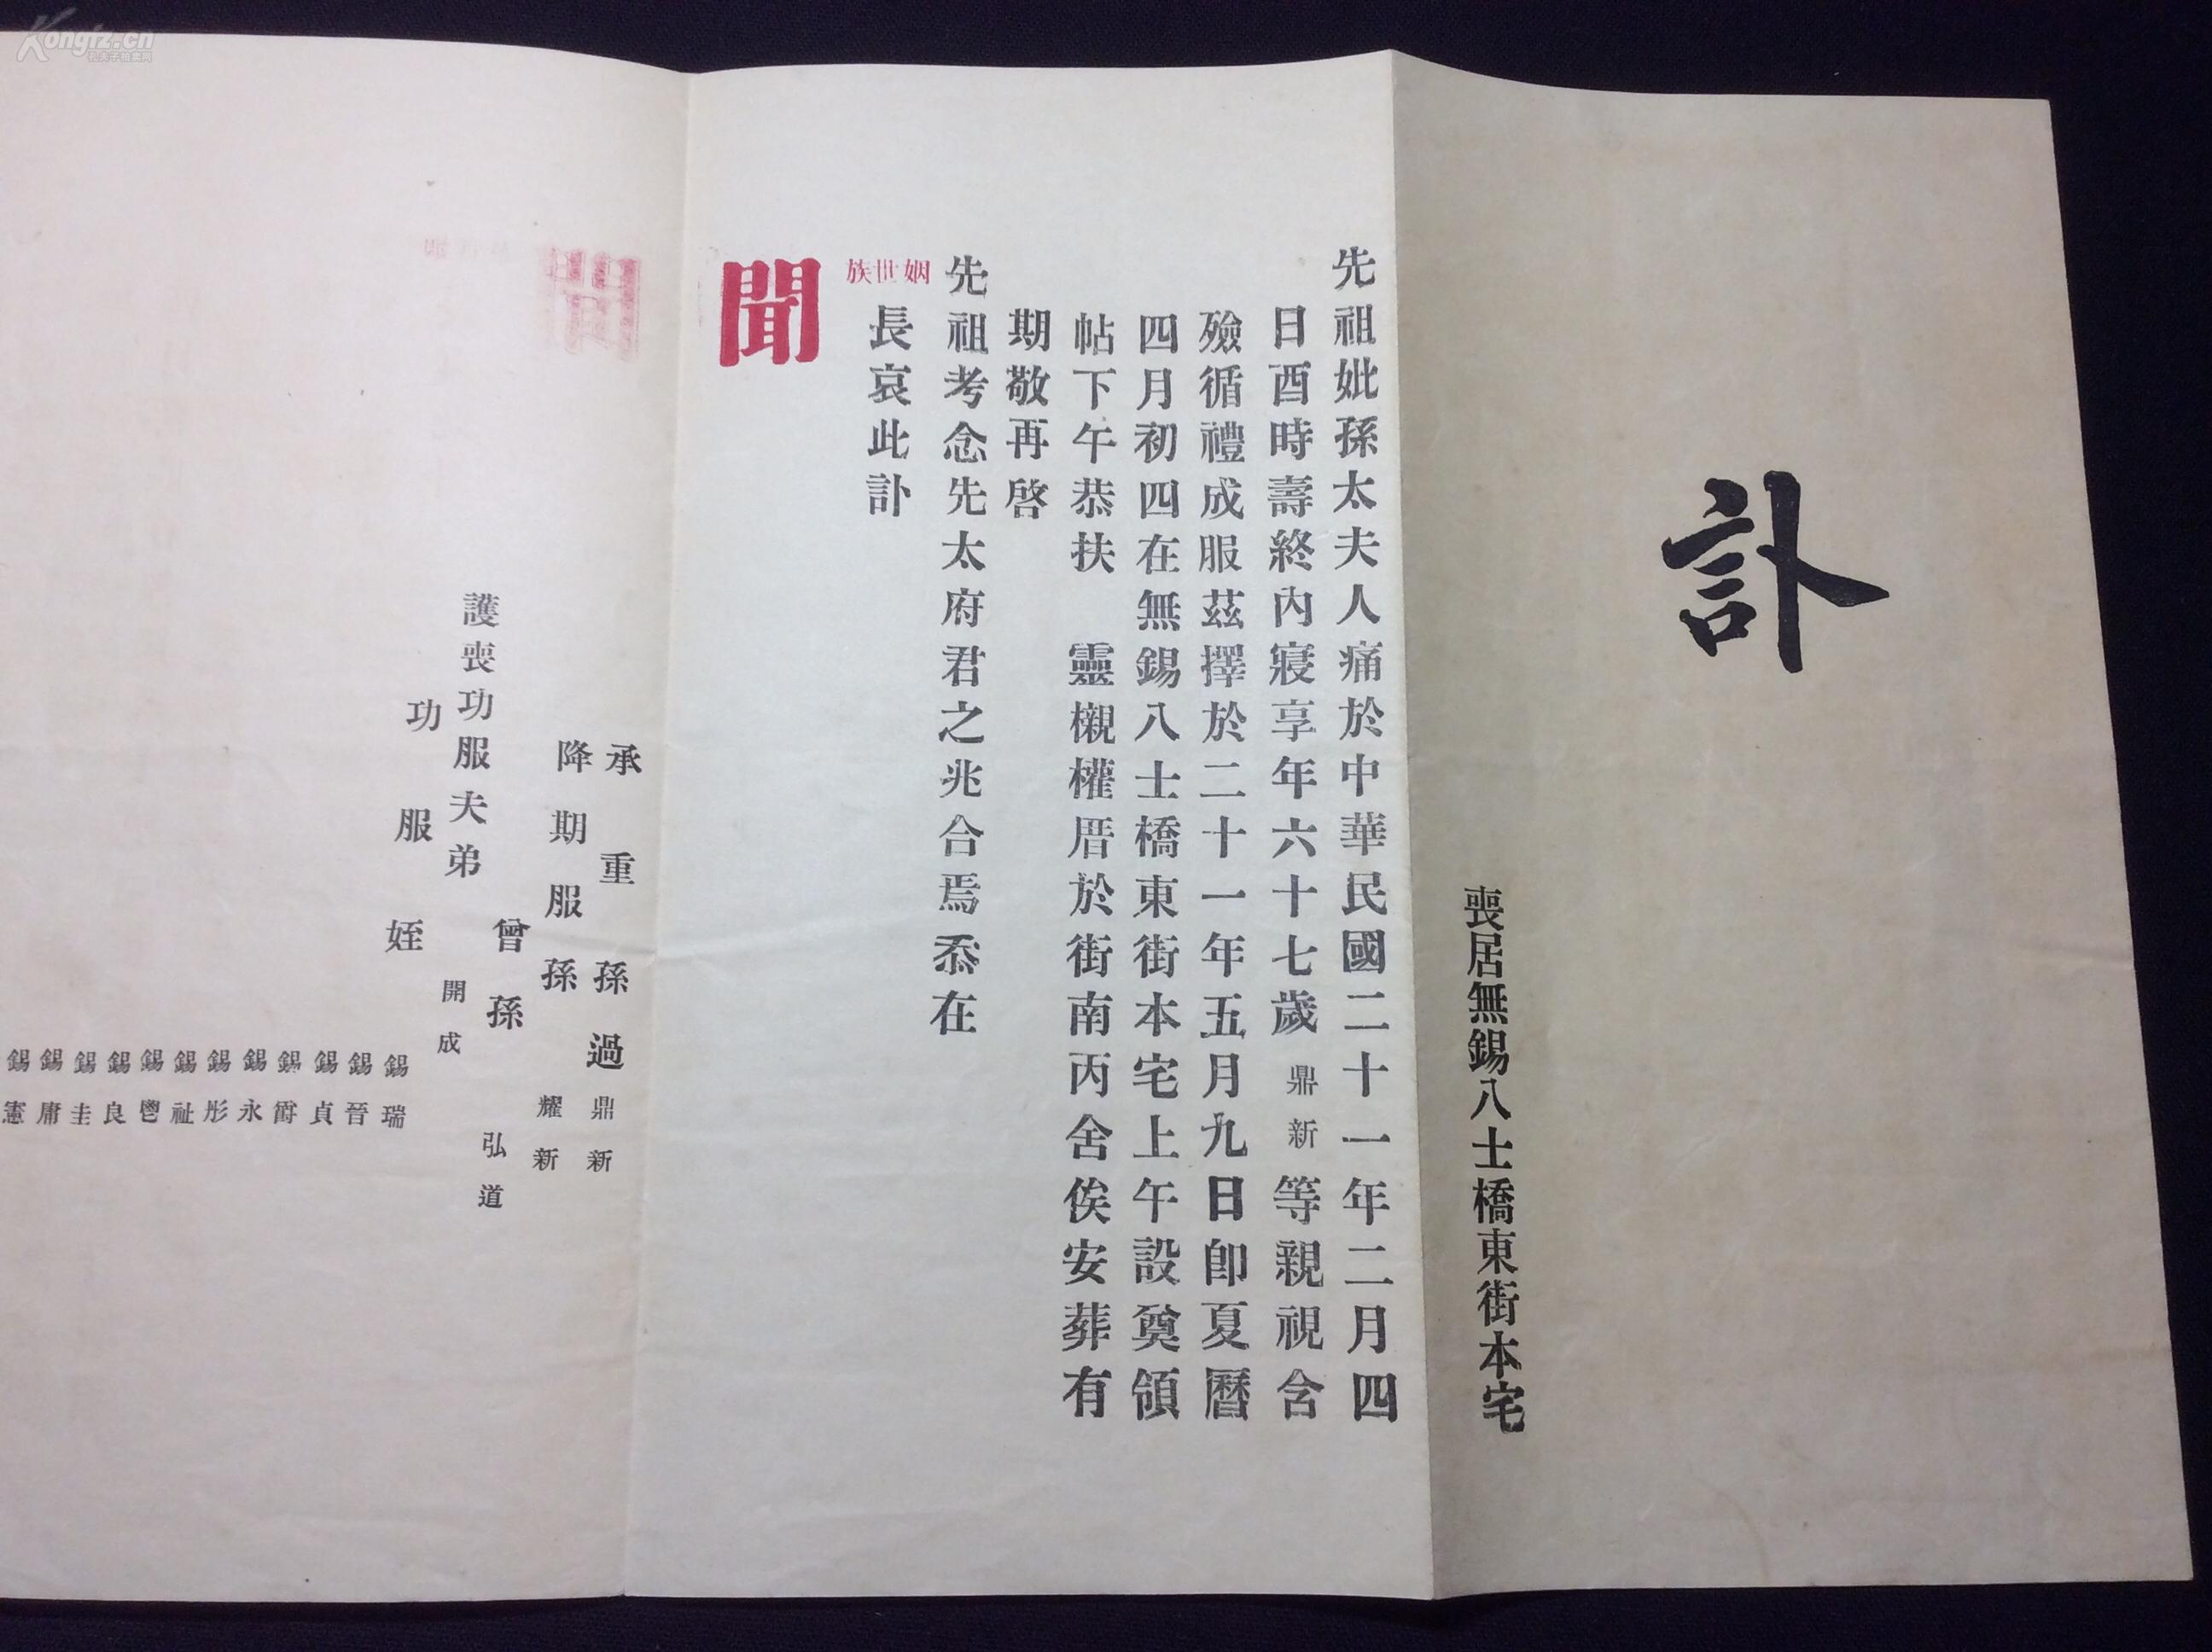 訃
喪居無錫八士橋東街本宅
先祖妣孫太夫人痛於中華民國二十一年二月四
日酉時壽終內寢享年六十七歲鼎新等親視含
殮循禮成服茲擇於二十一年五月九日卽夏曆
四月初四在無錫八士橋東街本宅上午設奠領
帖下午恭扶 靈櫬權厝於街南丙舍俟安葬有
期敬再啓
先祖考念先太府君之兆合焉忝在
姻世族
長哀此訃
聞
承重孫過鼎新
降期服孫耀新
曾孫弘道
護喪功服夫弟開成
功服姪
錫瑞
錫晉
錫貞
錫爵
錫永
錫彤
錫祉
錫鬯
錫良
錫圭
錫庸
錫憲
Kongfz.cn
孔夫子拍卖网